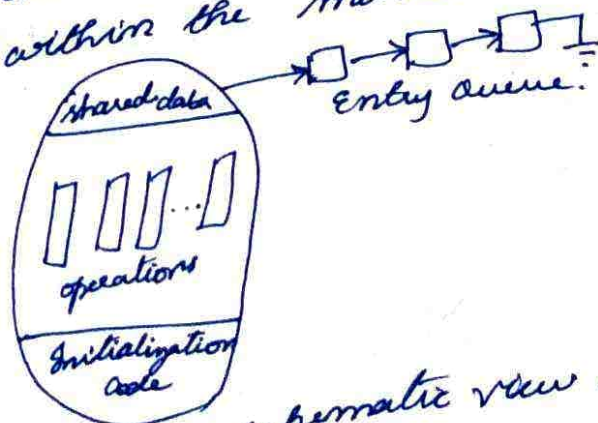 within the
shared data
Entry Queue.
...
operations
Initialization
Code
schematic view